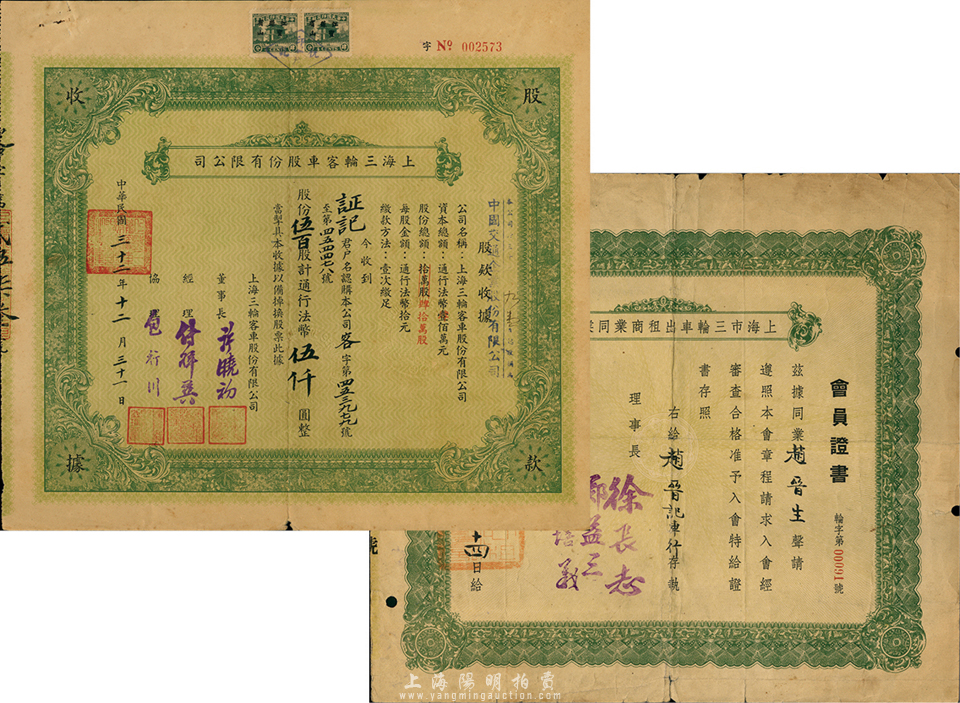 字 № 002573
股款收據
上海三輪客車股份有限公司
股款收據
公司名稱：上海三輪客車股份有限公司
資本總額：通行法幣壹佰萬元
股份總額：拾萬股
每股金額：通行法幣拾元
繳款方法：壹次繳足
今收到
証記君户名認購本公司客字第四五三九七九號
至第四五四四七八號
股份伍百股計通行法幣伍仟圓整
當掣具本收據以備掉換股票此據
上海三輪客車股份有限公司
董事長
經理
協理
中華民國三十二年十二月三十一日
上海市三輪車出租商業同業
會員證書
輪字第 號
茲據同業趙晉生聲請
遵照本會章程請求入會經
審查合格准予入會特給證
書存照
右給趙晉記車行存執
理事長
徐長志
十四日給
上海陽明拍賣
www.yangmingauction.com